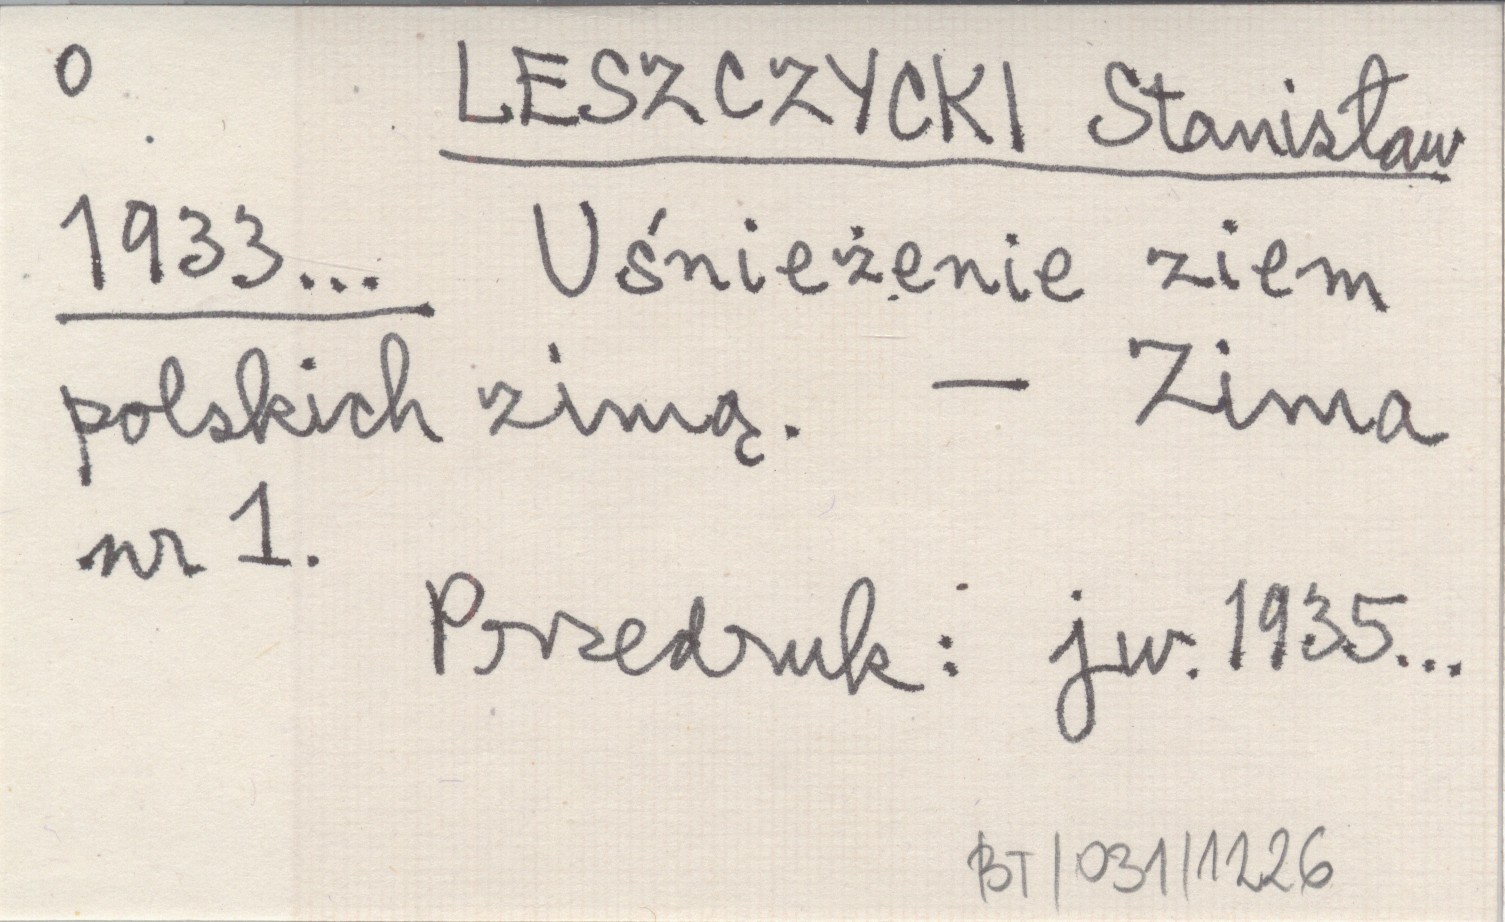 0 LESZCZYCKI Stanisław
1933... Uśnieżenie ziem
polskich zimą. — Zima
nr 1.
Przedruk: jw. 1935...
BT/031/1226